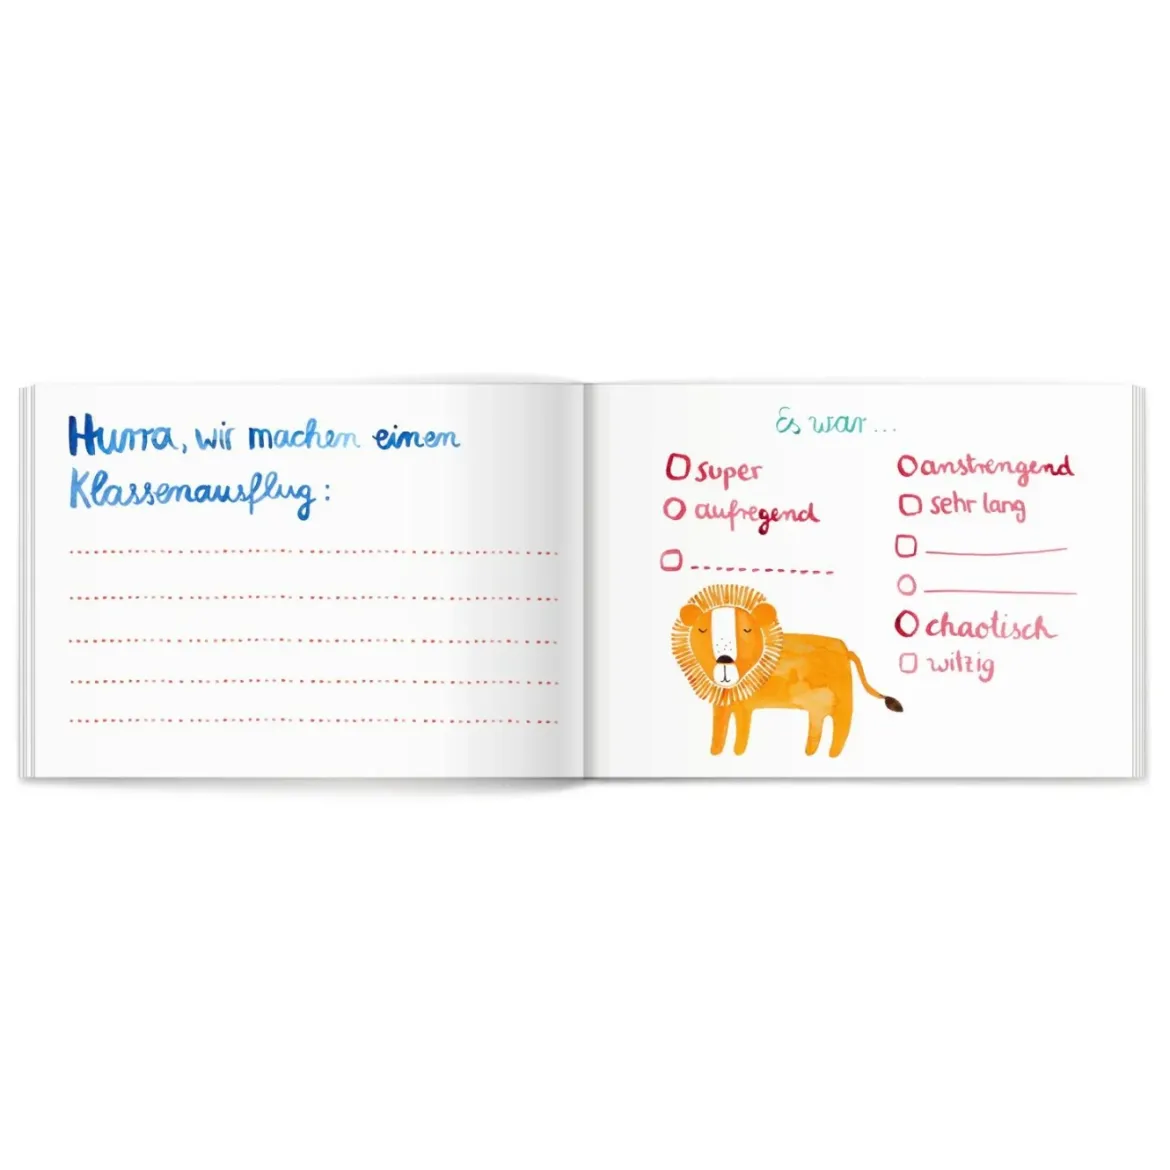 Hurra, wir machen einen
Klassenausflug:
Es war...
super
aufregend
anstrengend
sehr lang
chaotisch
witzig